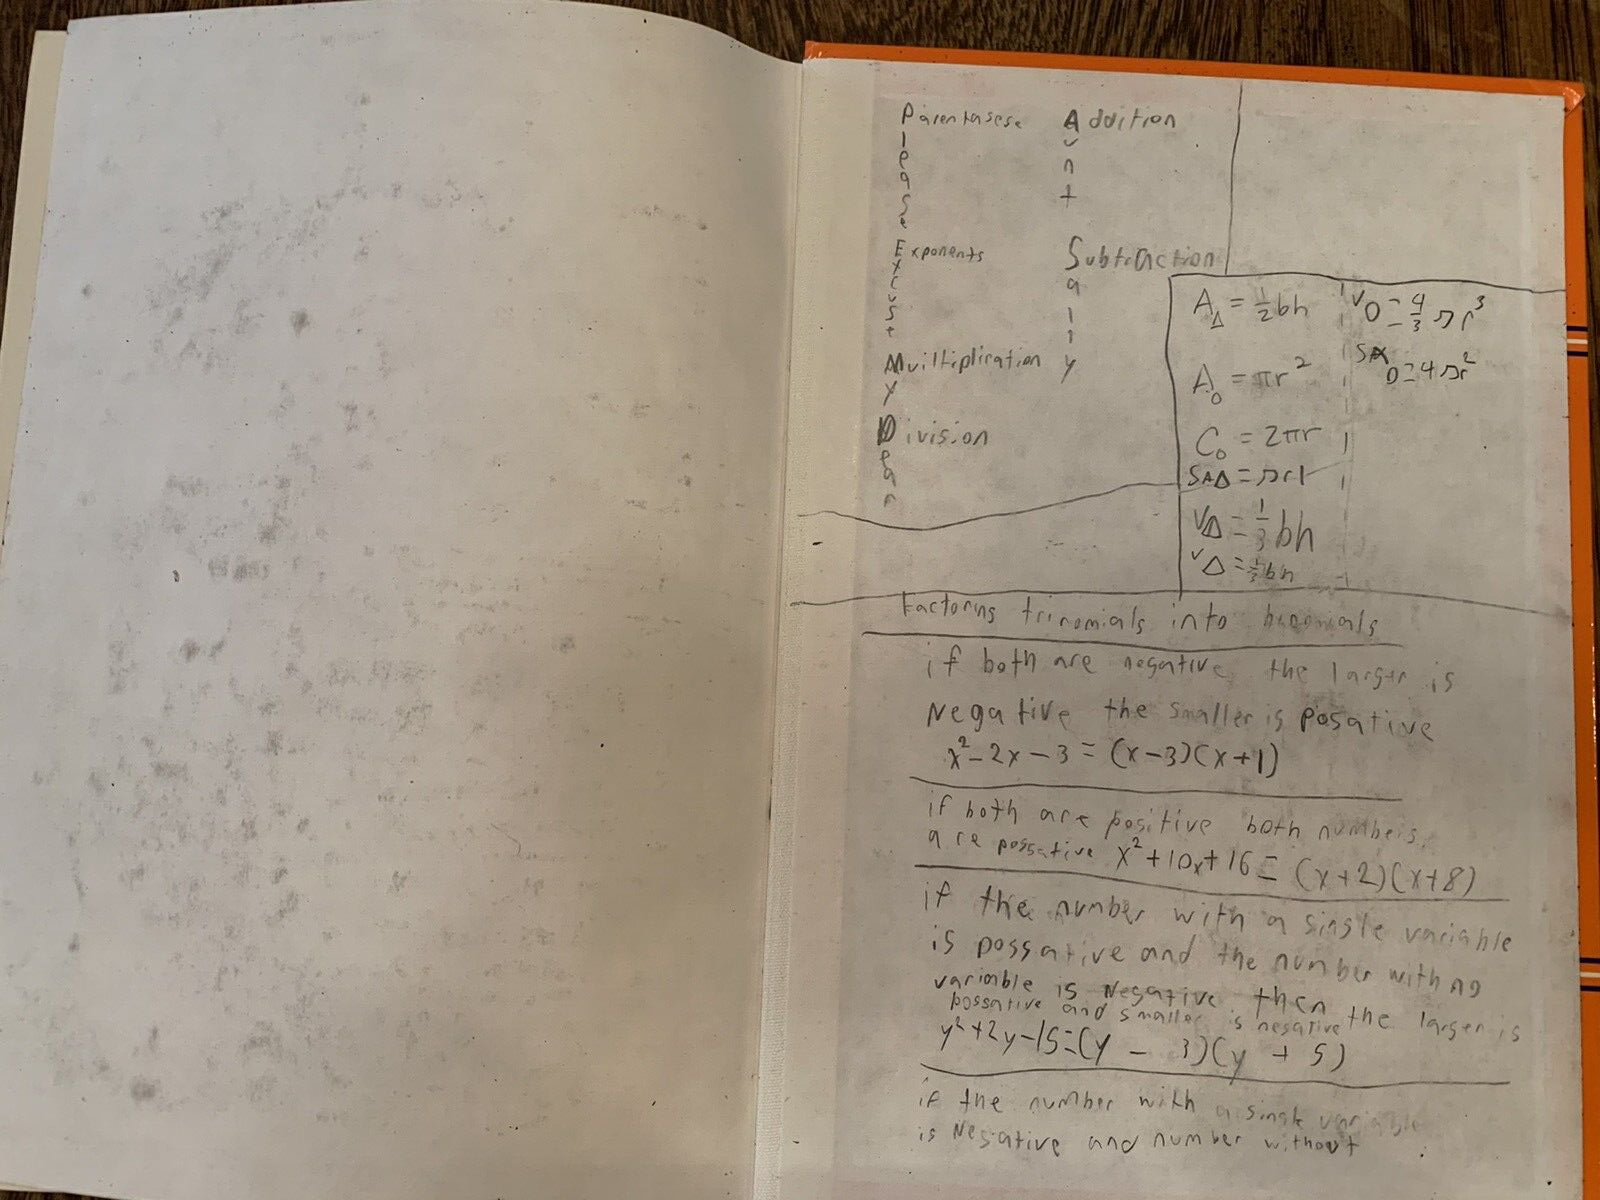 Parentasese
lease
Exponents
xcuse
Muiltiplication
y
Division
ear
Addition
unt
Subtraction
ally
A△ = 1/2 bh
A○ = πr²
C○ = 2πr
SA△ = πrl
V△ = 1/3 bh
V△ = 1/3 bh
V○ = 4/3 πr³
SA○ = 4πr²
factoring trinomials into binomials
if both are negative the larger is
Negative the smaller is posative
x² - 2x - 3 = (x-3)(x+1)
if both are positive both numbers
are possative x² + 10x + 16 = (x+2)(x+8)
if the number with a single variable
is possative and the number with no
variable is Negative then the larger is
possative and smaller is negative
y² + 2y - 15 = (y - 3)(y + 5)
if the number with a single variable
is Negative and number without